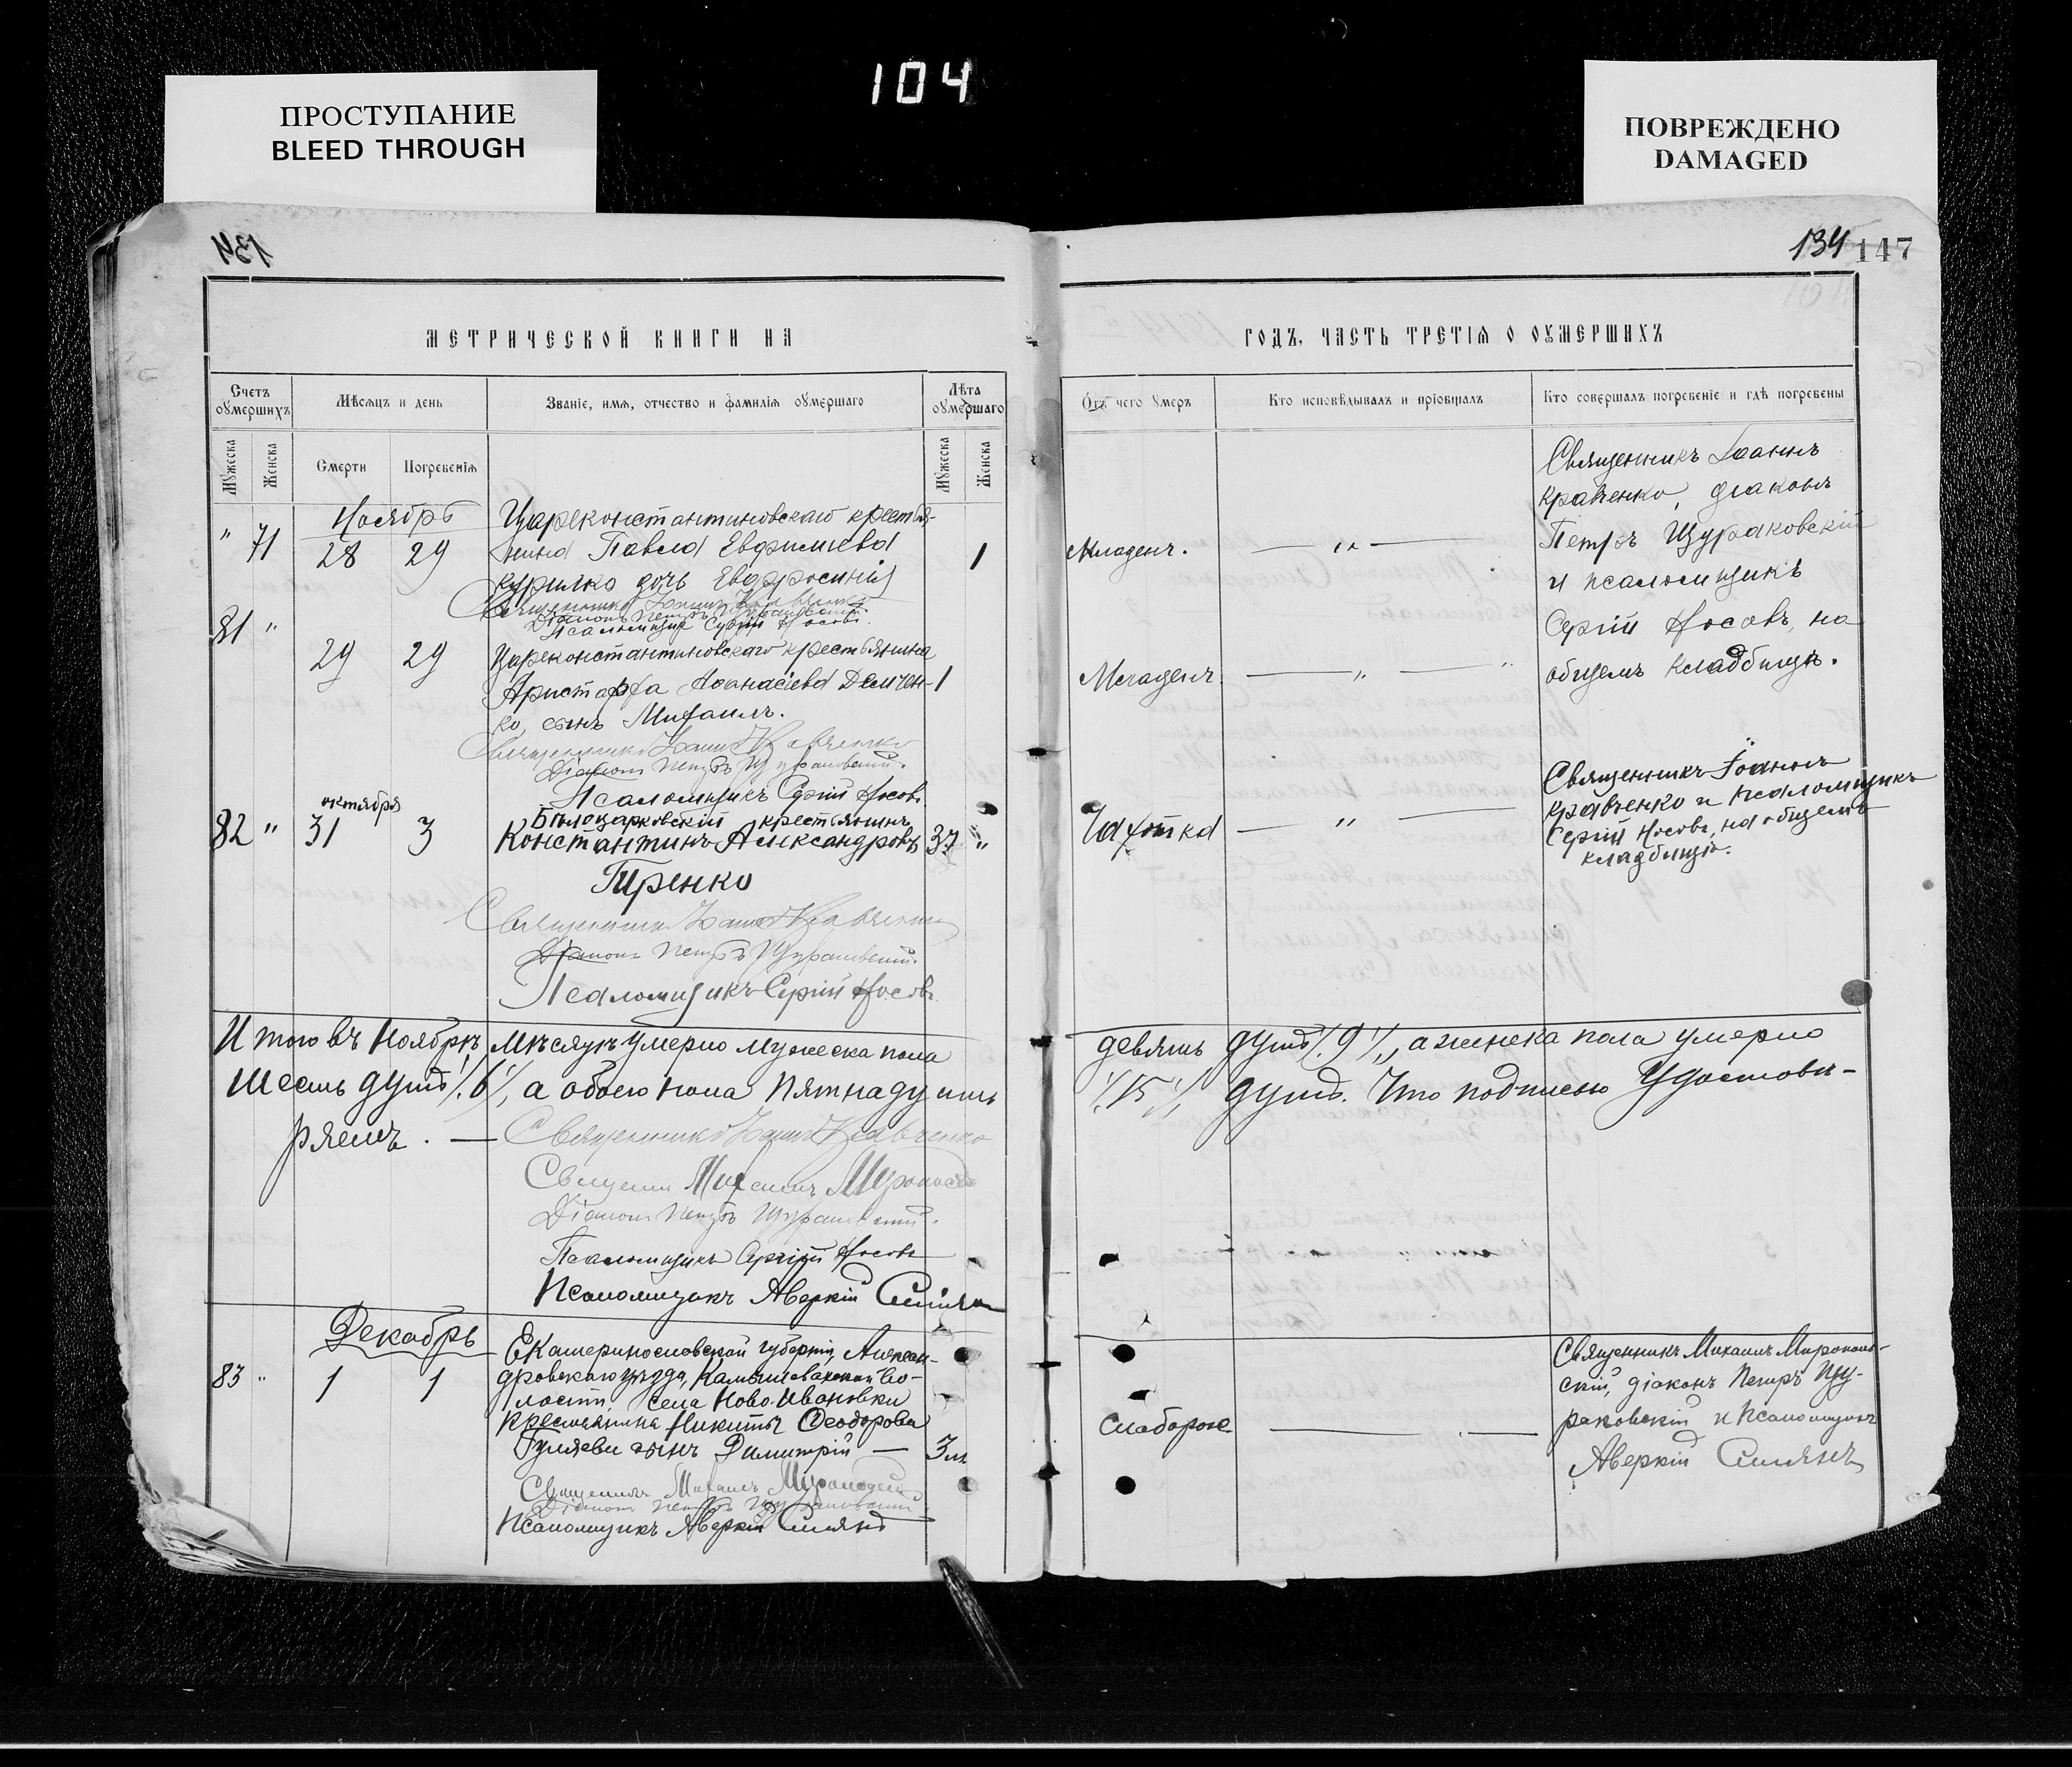 104
ПРОСТУПАНИЕ
BLEED THROUGH
ПОВРЕЖДЕНО
DAMAGED
134
134 147
МЕТРИЧЕСКОЙ КНИГИ НА
Счетъ оумершихъ
Мѣсяцъ и день
Званіе, имя, отчество и фамилія оумершаго
Лѣта оумершаго
Мужеска
Женска
Смерти
Погребенія
Мужеска
Женска
Ноябрь
" 71 28 29
Цареконстантиновскаго крестья-
нина Павла Евфимиева
Курилко дочь Евфросинія
1
Священникъ Іоаннъ Кравченко
Діаконъ Петръ Щураковскій.
Псаломщикъ Сергій Носовъ.
81 " 29 29
Цареконстантиновскаго крестьянина
Аристарха Аѳанасіева Демчен-
ко, сынъ Михаилъ.
1
Священникъ Іоаннъ Кравченко
Діаконъ Петръ Щураковскій.
Псаломщикъ Сергій Носовъ
октября
82 " 31 3
Бѣлоцарковскій крестьянинъ
Константинъ Александровъ
37 "
Гиренко
Священникъ Іоаннъ Кравченко
Діаконъ Петръ Щураковскій.
Псаломщикъ Сергій Носовъ
Итого въ Ноябрѣ мѣсяцѣ умерло мужеска пола
шесть душъ /.6/., а обоего пола пятнадцать
ряемъ. —
Священникъ Іоаннъ Кравченко
Священникъ Михаилъ
Діаконъ Петръ Щураковскій.
Псаломщикъ Сергій Носовъ
Псаломщикъ Аверкій
Декабрь
83 " 1 1
Екатеринославской губерніи, Алексан-
дровскаго уѣзда, Камышевахской во-
лости, села Ново-Ивановки
крестьянина Никиты Ѳеодорова
Гуляева сынъ Димитрій —
3 м
Священникъ Михаилъ
Діаконъ Петръ Щураковскій.
Псаломщикъ Аверкій
ГОДЪ, ЧАСТЬ ТРЕТІЯ О ОУМЕРШИХЪ
Отъ чего умеръ
Кто исповѣдывалъ и пріобщалъ
Кто совершалъ погребеніе и гдѣ погребены
Младенч. — " —
Священникъ Іоаннъ
Кравченко, діаконъ
Петръ Щураковскій
и псаломщикъ
Сергій Носовъ, на
общемъ кладбищѣ.
Младенч. — " —
Чахотка — " —
Священникъ Іоаннъ
Кравченко и псаломщикъ
Сергій Носовъ, на общемъ
кладбищѣ.
девять душъ /.9/., а женска пола умерло
/.15/. душъ. Что подписью удостовѣ-
Слаборожд. —
Священникъ Михаилъ Мирополь-
скій, діаконъ Петръ Щу-
раковскій и псаломщикъ
Аверкій